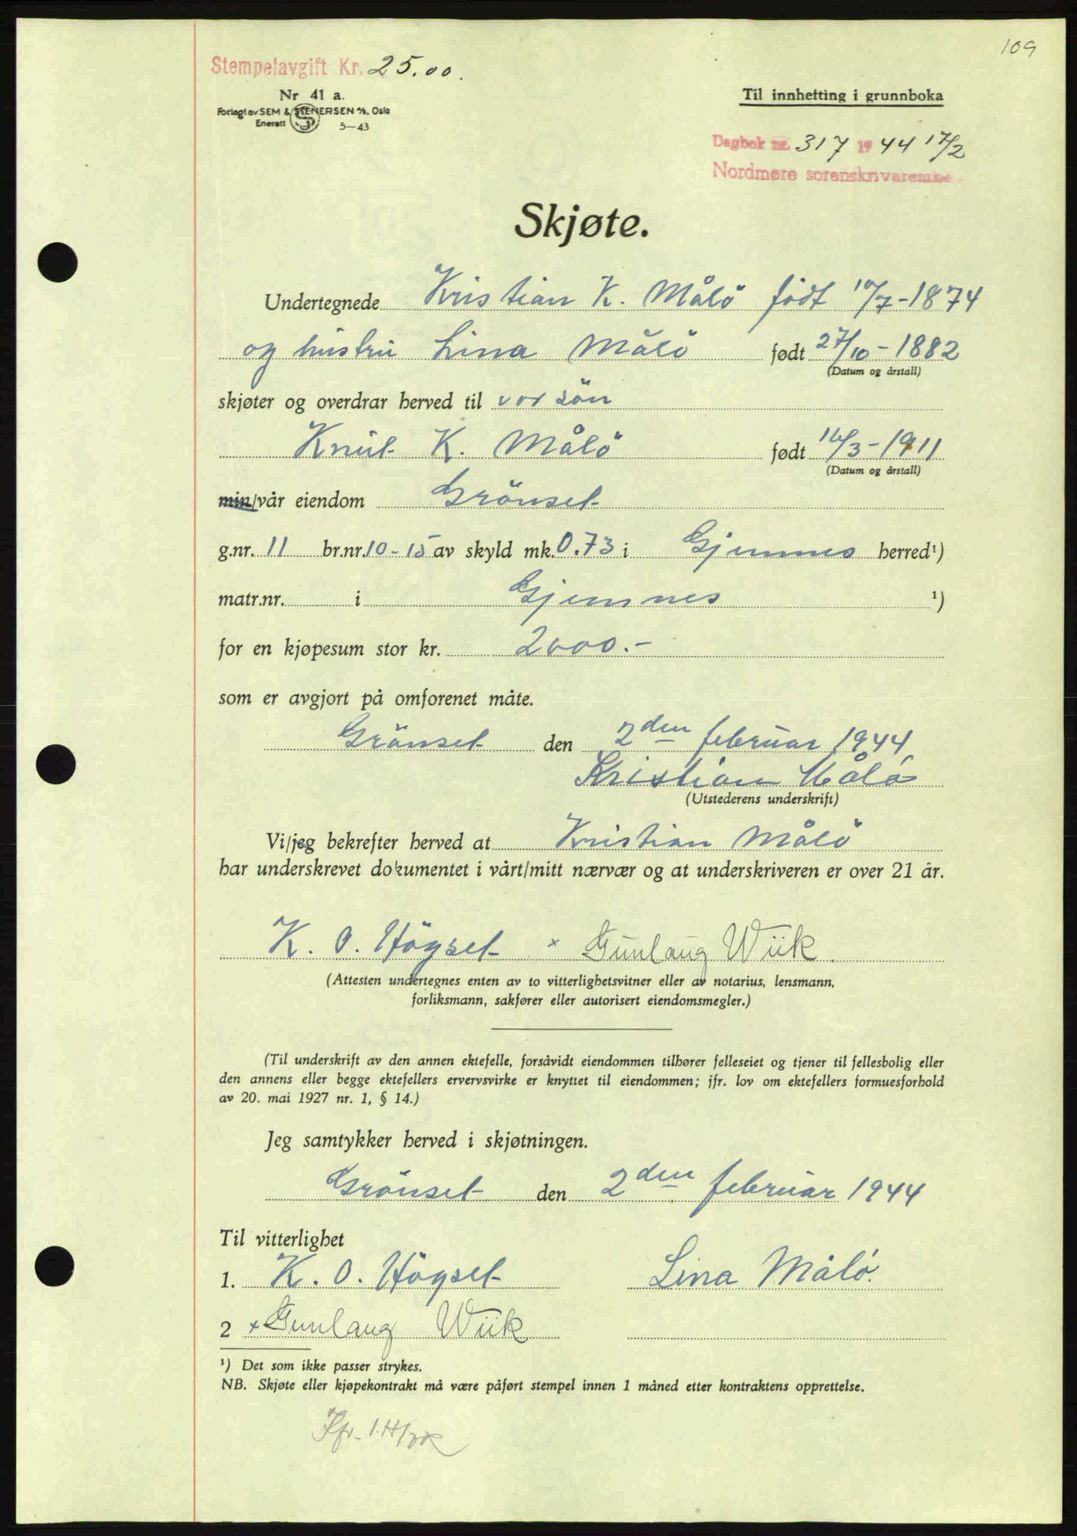 109
Stempelavgift Kr. 25.00.
Nr 41 a.
Forlagt av SEM & STENERSEN A/S, Oslo
Enerett 5—43
Til innhefting i grunnboka
Dagbok nr. 317 1944 17/2
Nordmøre sorenskrivarembe
Skjøte.
Undertegnede Kristian K. Målö født 17/7-1874
og hustru Lina Målö født 27/10-1882
(Datum og årstall)
skjøter og overdrar herved til vor sön
Knut K. Målö født 16/3-1911
(Datum og årstall)
min/vår eiendom Grönset
g.nr. 11 br.nr. 10-15 av skyld mk. 0.73 i Gjemnes herred¹)
matr.nr. i Gjemnes ¹)
for en kjøpesum stor kr. 2000.-
som er avgjort på omforenet måte.
Grönset den 2den februar 1944
Kristian Målö
(Utstederens underskrift)
Vi/jeg bekrefter herved at Kristian Målö
har underskrevet dokumentet i vårt/mitt nærvær og at underskriveren er over 21 år.
K. O. Högset × Gunlaug Wiik.
(Attesten undertegnes enten av to vitterlighetsvitner eller av notarius, lensmann,
forliksmann, sakfører eller autorisert eiendomsmegler.)
(Til underskrift av den annen ektefelle, forsåvidt eiendommen tilhører felleseiet og tjener til fellesbolig eller
den annens eller begge ektefellers ervervsvirke er knyttet til eiendommen; jfr. lov om ektefellers formuesforhold
av 20. mai 1927 nr. 1, § 14.)
Jeg samtykker herved i skjøtningen.
Grönset den 2den februar 1944
Til vitterlighet
1. K. O. Högset Lina Målö.
2 × Gunlaug Wiik
¹) Det som ikke passer strykes.
NB. Skjøte eller kjøpekontrakt må være påført stempel innen 1 måned etter kontraktens opprettelse.